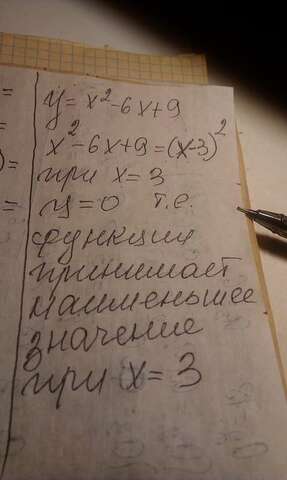 y = x² - 6x + 9
x² - 6x + 9 = (x-3)²
при x = 3
y = 0 т.е.
функция
принимает
наименьшее
значение
при x = 3